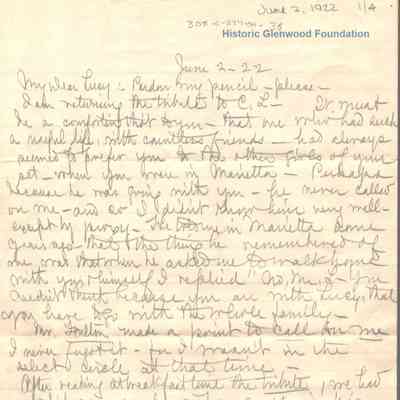 June 2, 1922 1/4
Historic Glenwood Foundation
June 2-22
My dear Lucy:- Pardon my pencil - please -
I am returning the tribute to C. L- It must
be a comforting that to you - that one who had such
a useful life, with countless friends - had always
seemed to prefer you to the other girls of your
set - when you were in Marietta - Perhaps
because he was going with you - he never called
on me - and so I didn't know him very well-
except by proxy - in Marietta some
years ago - that the thing he remembered of
me was that when he asked me to walk
with you & himself I replied "No, Mr. - You
needn't think because you are with Lucy that
you have to go with the whole family -
Mr. made a point to call on me
I never forgot it - for I wasn't in the
select circle at that time -
After reading at breakfast time the tribute, we had